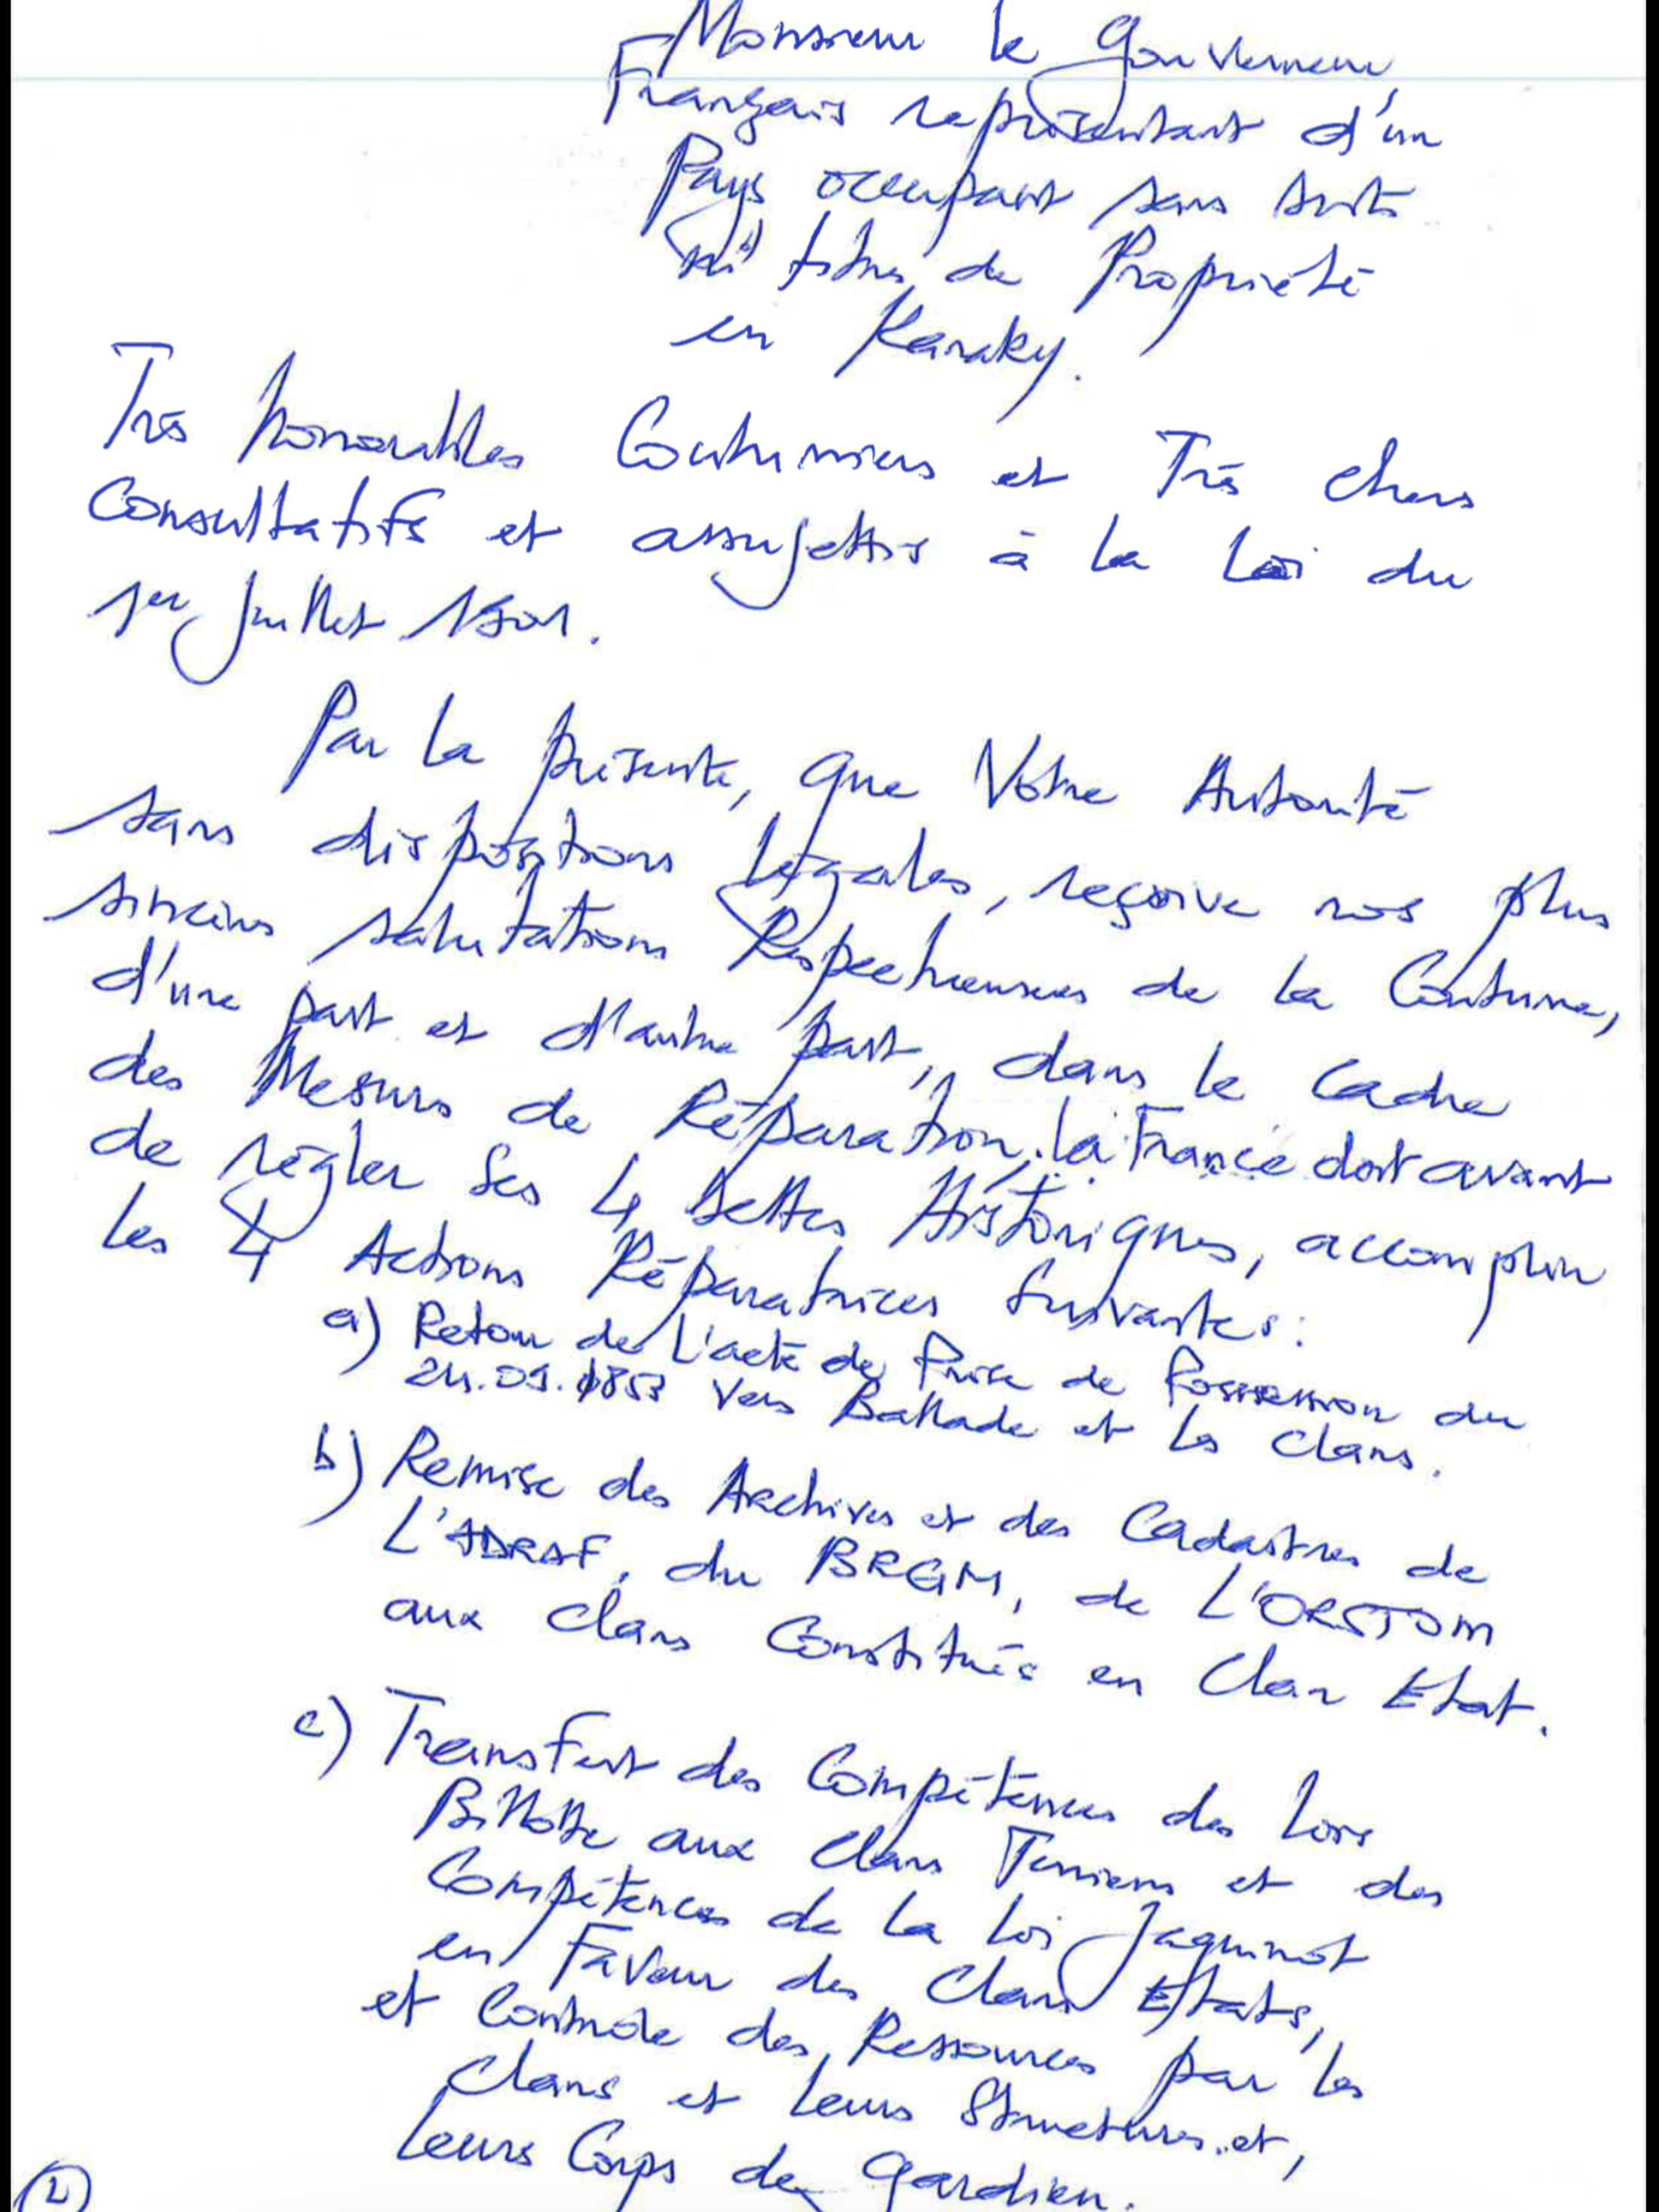 Monsieur le Gouverneur
Français représentant d'un
Pays occupant sans droit
ni titres de Propriété
en Kanaky.
Très honorables Coutumiers et Très chers
Consultatifs et assujettis à la Loi du
1er Juillet 1901.
Par la présente, que Votre Autorité
sans dispositions légales, reçoive nos plus
sincères salutations Respectueuses de la Coutume,
d'une part et d'autre part, dans le cadre
des Mesures de Réparation, la France doit avant
de régler ses 4 dettes Historiques, accomplir
les 4 Actions Réparatrices suivantes :
a) Retour de L'acte de Prise de Possession du
24.09.1853 Vers Ballade et les Clans.
b) Remise des Archives et des Cadastres de
L'ADRAF, du BRGM, de L'ORSTOM
aux Clans Constitués en Clan Etat.
c) Transfert des Compétences des Lois
Billotte aux Clans Terriens et des
Compétences de la Loi Jaquinot
en Faveur des Clans Etats,
et Contrôle des Ressources par les
Clans et leurs Structures et,
leurs Corps de gardien.